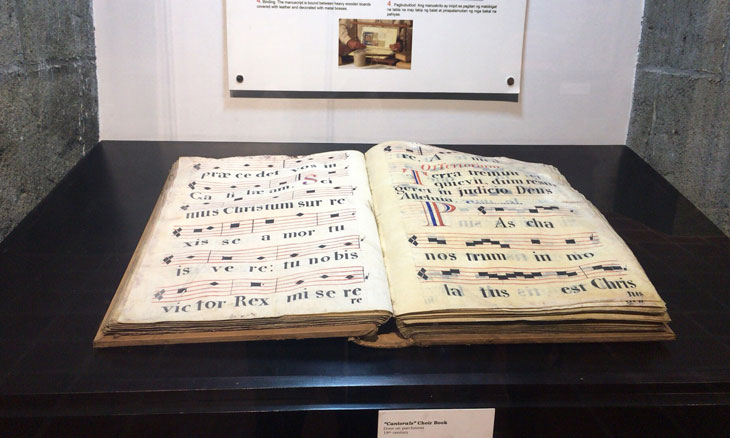 Binding. The manuscript is bound between heavy wooden boards
covered with leather and decorated with metal bosses.
4. Pagbubuklod: Ang manuskrito ay inipit sa pagitan ng mabibigat
na tabla na may takip ng balat at pinapalamutian ng mga bakal na
præ ce det vos in
Ga li læ am. Sci
mus Christum sur re
xis se a mor tu
is ve re: tu nobis
victor Rex mi se re
re
re. A me
Offertorium
Terra tremuit
quievit, dum resur
geret in judicio Deus
P As cha
nos trum im mo
la tus est Chris
tus
"Cantorals" Choir Book
Done on parchment